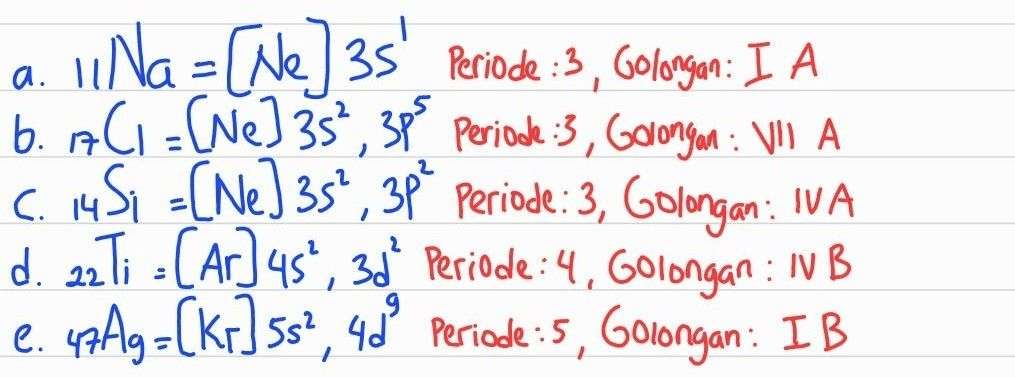 a. ₁₁Na = [Ne] 3s¹ Periode : 3, Golongan : I A
b. ₁₇Cl = [Ne] 3s², 3p⁵ Periode : 3, Golongan : VII A
c. ₁₄Si = [Ne] 3s², 3p² Periode : 3, Golongan : IV A
d. ₂₂Ti = [Ar] 4s², 3d² Periode : 4, Golongan : IV B
e. ₄₇Ag = [Kr] 5s², 4d⁹ Periode : 5, Golongan : I B